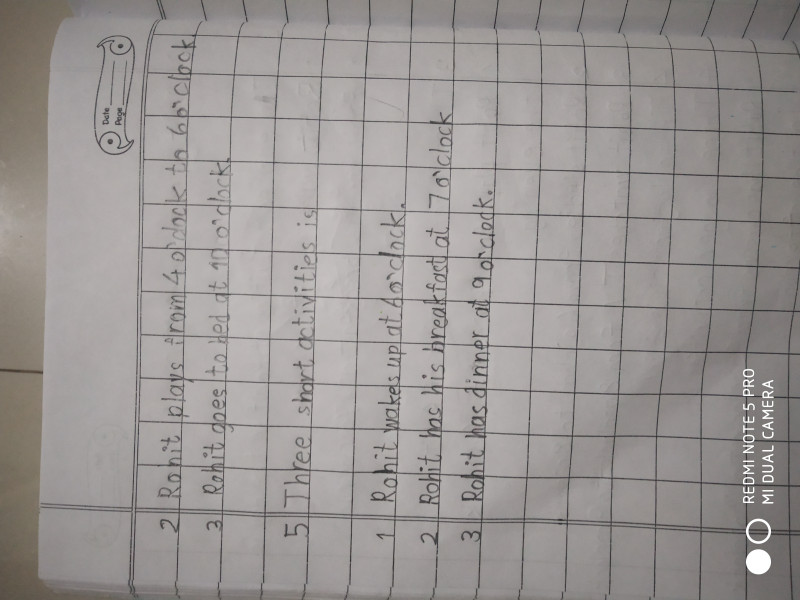 Date
Page
2 Rohit plays from 4 o'clock to 6 o'clock
3 Rohit goes to bed at 10 o'clock.
5 Three short activities is
1 Rohit wakes up at 6 o'clock.
2 Rohit has his breakfast at 7 o'clock
3 Rohit has dinner at 9 o'clock.
REDMI NOTE 5 PRO
MI DUAL CAMERA